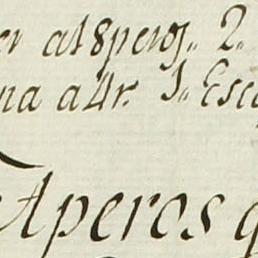 er at 8 peros,, 2.
na a 4 r. 1,, Esca
Aperos q